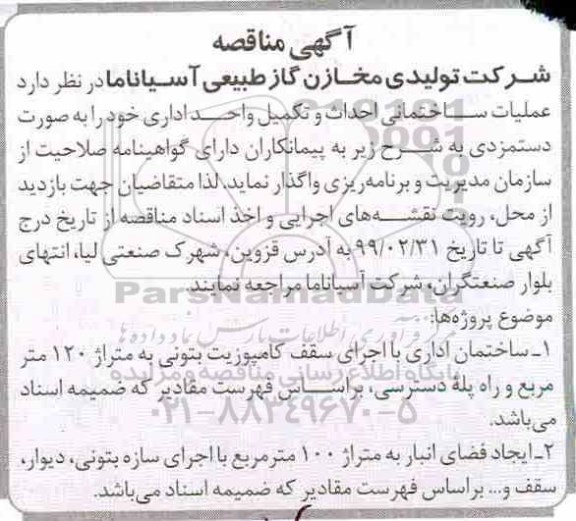 آگهی مناقصه
شرکت تولیدی مخازن گاز طبیعی آسیاناما در نظر دارد
عملیات ساختمانی احداث و تکمیل واحد اداری خود را به صورت
دستمزدی به شرح زیر به پیمانکاران دارای گواهینامه صلاحیت از
سازمان مدیریت و برنامه‌ریزی واگذار نماید. لذا متقاضیان جهت بازدید
از محل، رویت نقشه‌های اجرایی و اخذ اسناد مناقصه از تاریخ درج
آگهی تا تاریخ ۹۹/۰۲/۳۱ به آدرس قزوین، شهرک صنعتی لیا، انتهای
بلوار صنعتگران، شرکت آسیاناما مراجعه نمایند.
ParsNamadData
موضوع پروژه‌ها:
۱ـ ساختمان اداری با اجرای سقف کامپوزیت بتونی به متراژ ۱۲۰ متر
پایگاه اطلاع رسانی مناقصه و مزایده
مربع و راه پلهٔ دسترسی، براساس فهرست مقادیر که ضمیمه اسناد
۰۲۱-۸۸۳۴۹۶۷۰-۵
می‌باشد.
۲ـ ایجاد فضای انبار به متراژ ۱۰۰ مترمربع با اجرای سازه بتونی، دیوار،
سقف و... براساس فهرست مقادیر که ضمیمه اسناد می‌باشد.